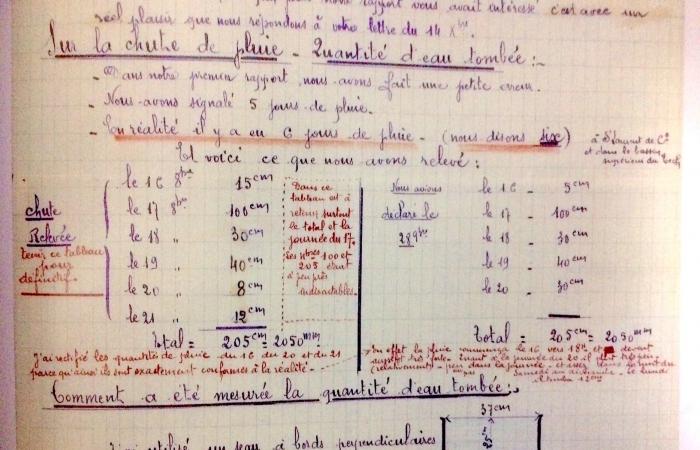 rapport vous avait intéressé c'est avec un
réel plaisir que nous répondons à votre lettre du 14 Xbre
Sur la chute de pluie - Quantité d'eau tombée :-
- Dans notre premier rapport, nous avons fait une petite erreur.
- Nous avons signalé 5 jours de pluie.
- En réalité il y a eu 6 jours de pluie - (nous disons six)
à St Laurent de Cs
et dans le bassin
supérieur du Tech
Et voici ce que nous avons relevé :
chute
Relevée
tenir ce tableau
pour
définitif.
le 16 8bre 15cm
le 17 8bre 100cm
le 18 " 30cm
le 19 " 40cm
le 20 " 8cm
le 21 " 12cm
Total = 205cm = 2050mm
Dans ce
tableau est à
retenir surtout
le total et la
journée du 17.
Les nbres 100 et
205 étant
à peu près
indiscutables.
Nous avions
déclaré le
28 9bre
le 16 - 5cm
le 17 - 100cm
le 18 - 30cm
le 19 - 40cm
le 20 - 30cm
Total = 205cm = 2050mm
J'ai rectifié les quantités de pluie du 16 du 20 et du 21
parce qu'ainsi ils sont exactement conformes à la réalité -
En effet la pluie commença le 16 vers 18h et devint
aussitôt très forte. Quant à la journée du 20 il plut très peu
(relativement) - peu dans la journée - et assez dans la nuit du
Comment a été mesurée la quantité d'eau tombée :-
37cm
utilisé un seau à bords perpendiculaires